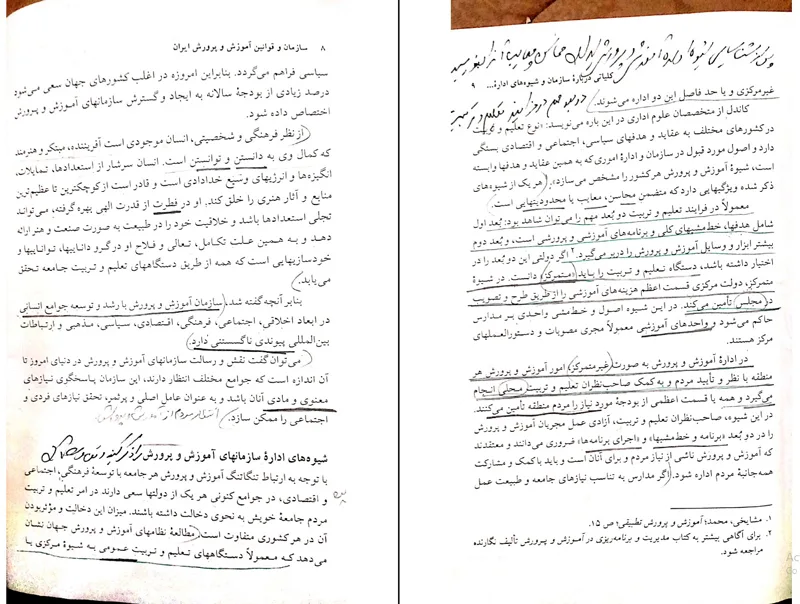 ۸ سازمان و قوانین آموزش و پرورش ایران
سیاسی فراهم می‌گردد. بنابراین امروزه در اغلب کشورهای جهان سعی می‌شود
درصد زیادی از بودجهٔ سالانه به ایجاد و گسترش سازمانهای آموزش و پرورش
اختصاص داده شود.
از نظر فرهنگی و شخصیتی، انسان موجودی است آفریننده، مبتکر و هنرمند
که کمال وی به دانستن و توانستن است. انسان سرشار از استعدادها، تمایلات،
انگیزه‌ها و انرژیهای وسیع خدادادی است و قادر است از کوچکترین تا عظیم‌ترین
منابع و آثار هنری را خلق کند. او در فطرت از قدرت الهی بهره گرفته، می‌تواند
تجلی استعدادها باشد و خلاقیت خود را در طبیعت به صورت صنعت و هنر ارائه
دهد و به همین علت تکامل، تعالی و فلاح او در گرو داناییها، تواناییها و
خودسازیهایی است که همه از طریق دستگاههای تعلیم و تربیت جامعه تحقق
می‌یابد.
بنابر آنچه گفته شد، سازمان آموزش و پرورش با رشد و توسعه جوامع انسانی
در ابعاد اخلاقی، اجتماعی، فرهنگی، اقتصادی، سیاسی، مذهبی و ارتباطات
بین‌المللی پیوندی ناگسستنی دارد.
می‌توان گفت نقش و رسالت سازمانهای آموزش و پرورش در دنیای امروز تا
آن اندازه است که جوامع مختلف انتظار دارند، این سازمان پاسخگوی نیازهای
معنوی و مادی آنان باشد و به عنوان عامل اصلی و پرثمر، تحقق نیازهای فردی و
اجتماعی را ممکن سازد.
شیوه‌های ادارهٔ سازمانهای آموزش و پرورش
با توجه به ارتباط تنگاتنگ آموزش و پرورش هر جامعه با توسعهٔ فرهنگی، اجتماعی
و اقتصادی، در جوامع کنونی هر یک از دولتها سعی دارند در امر تعلیم و تربیت
مردم جامعهٔ خویش به نحوی دخالت داشته باشند. میزان این دخالت و مؤثربودن
آن در هر کشوری متفاوت است. مطالعهٔ نظامهای آموزش و پرورش جهان نشان
می‌دهد که معمولاً دستگاههای تعلیم و تربیت عمومی به شیوهٔ مرکزی یا
کلیاتی دربارهٔ سازمان و شیوه‌های ادارهٔ... ۹
غیرمرکزی و یا حد فاصل این دو اداره می‌شوند.
کاندل از متخصصان علوم اداری در این باره می‌نویسد: «نوع تعلیم و تربیت
در کشورهای مختلف به عقاید و هدفهای سیاسی، اجتماعی و اقتصادی بستگی
دارد و اصول مورد قبول در سازمان و ادارهٔ اموری که به همین عقاید و هدفها وابسته
است، شیوهٔ آموزش و پرورش هر کشور را مشخص می‌سازد». هر یک از شیوه‌های
ذکر شده ویژگیهایی دارد که متضمن محاسن، معایب یا محدودیتهایی است.
معمولاً در فرایند تعلیم و تربیت دو بُعد مهم را می‌توان شاهد بود: بُعد اول
شامل هدفها، خط‌مشیهای کلی و برنامه‌های آموزشی و پرورشی است، و بُعد دوم
بیشتر ابزار و وسایل آموزش و پرورش را دربر می‌گیرد.۲ اگر دولتی این دو بُعد را در
اختیار داشته باشد، دستگاه تعلیم و تربیت را باید (متمرکز) دانست. در شیوهٔ
متمرکز، دولت مرکزی قسمت اعظم هزینه‌های آموزشی را از طریق طرح و تصویب
در مجلس تأمین می‌کند. در این شیوه اصول و خط‌مشی واحدی بر مدارس
حاکم می‌شود و واحدهای آموزشی معمولاً مجری مصوبات و دستورالعملهای
مرکز هستند.
در ادارهٔ آموزش و پرورش به صورت (غیرمتمرکز)، امور آموزش و پرورش هر
منطقه با نظر و تأیید مردم و به کمک صاحب‌نظران تعلیم و تربیت محلی انجام
می‌گیرد و همه یا قسمت اعظمی از بودجهٔ مورد نیاز را مردم منطقه تأمین می‌کنند.
در این شیوه، صاحب‌نظران تعلیم و تربیت، آزادی عمل مجریان آموزش و پرورش
را در دو بُعد «برنامه و خط‌مشیها» و «اجرای برنامه‌ها» ضروری می‌دانند و معتقدند
که آموزش و پرورش ناشی از نیاز مردم و برای آنان است و باید با کمک و مشارکت
همه‌جانبهٔ مردم اداره شود. اگر مدارس به تناسب نیازهای جامعه و طبیعت عمل
۱. مشایخی، محمد؛ آموزش و پرورش تطبیقی؛ ص ۱۵.
۲. برای آگاهی بیشتر به کتاب مدیریت و برنامه‌ریزی در آموزش و پرورش تألیف نگارنده
مراجعه شود.